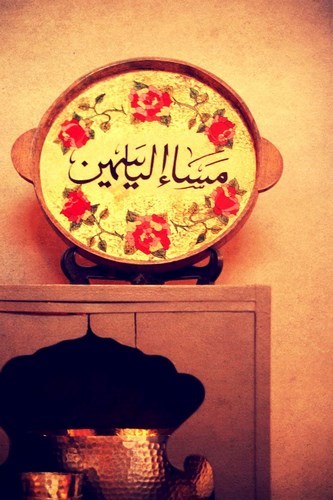 مساء الياسمين